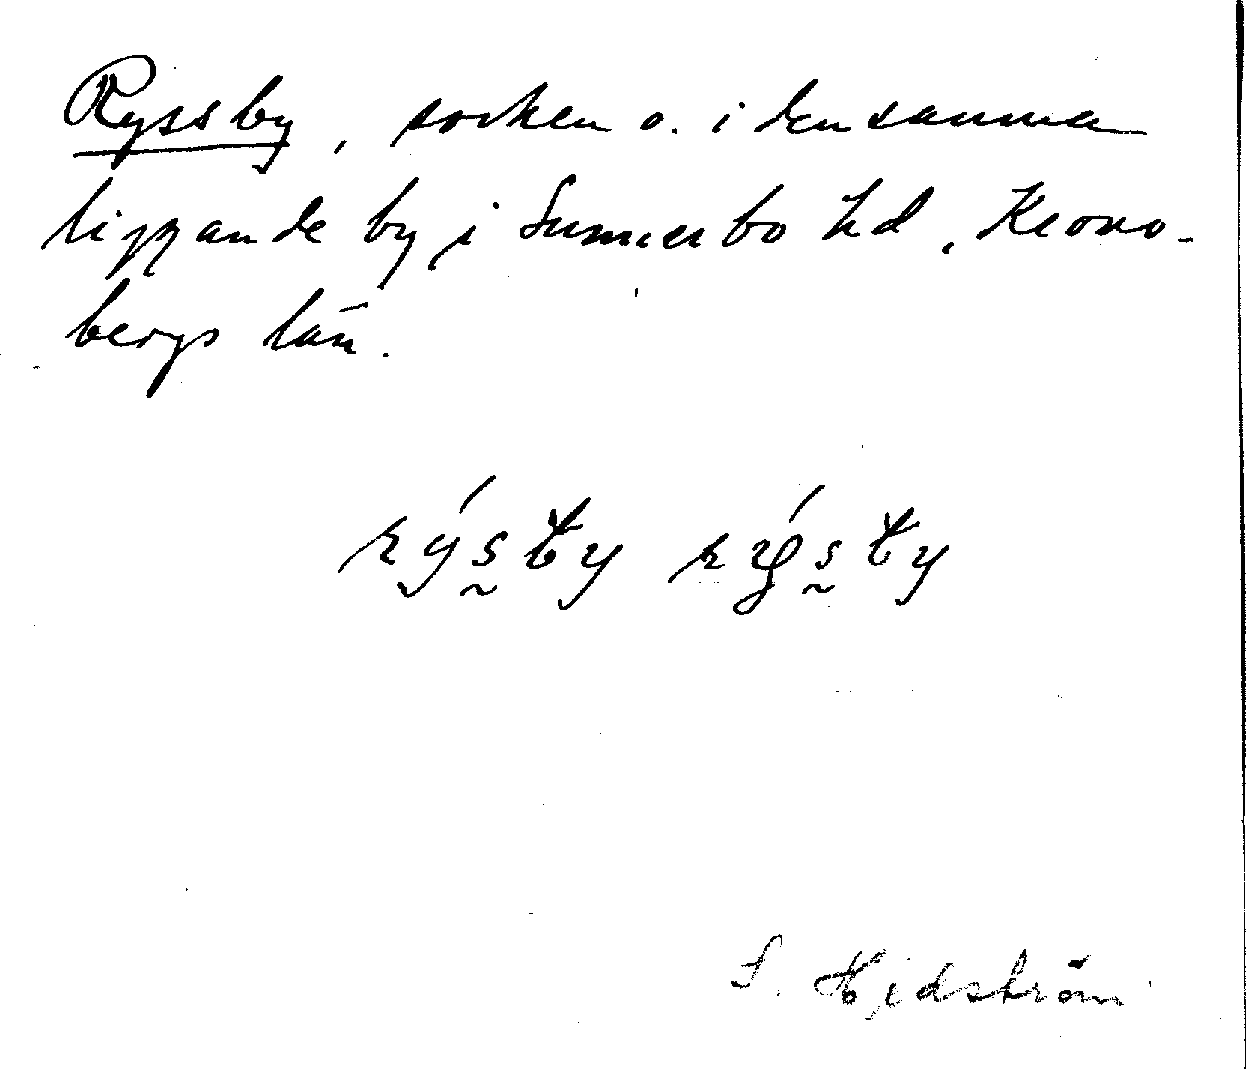 Ryssby, socken o. i densamma
liggande by i Sunnerbo hd, Krono-
bergs län.
S. Hjdström